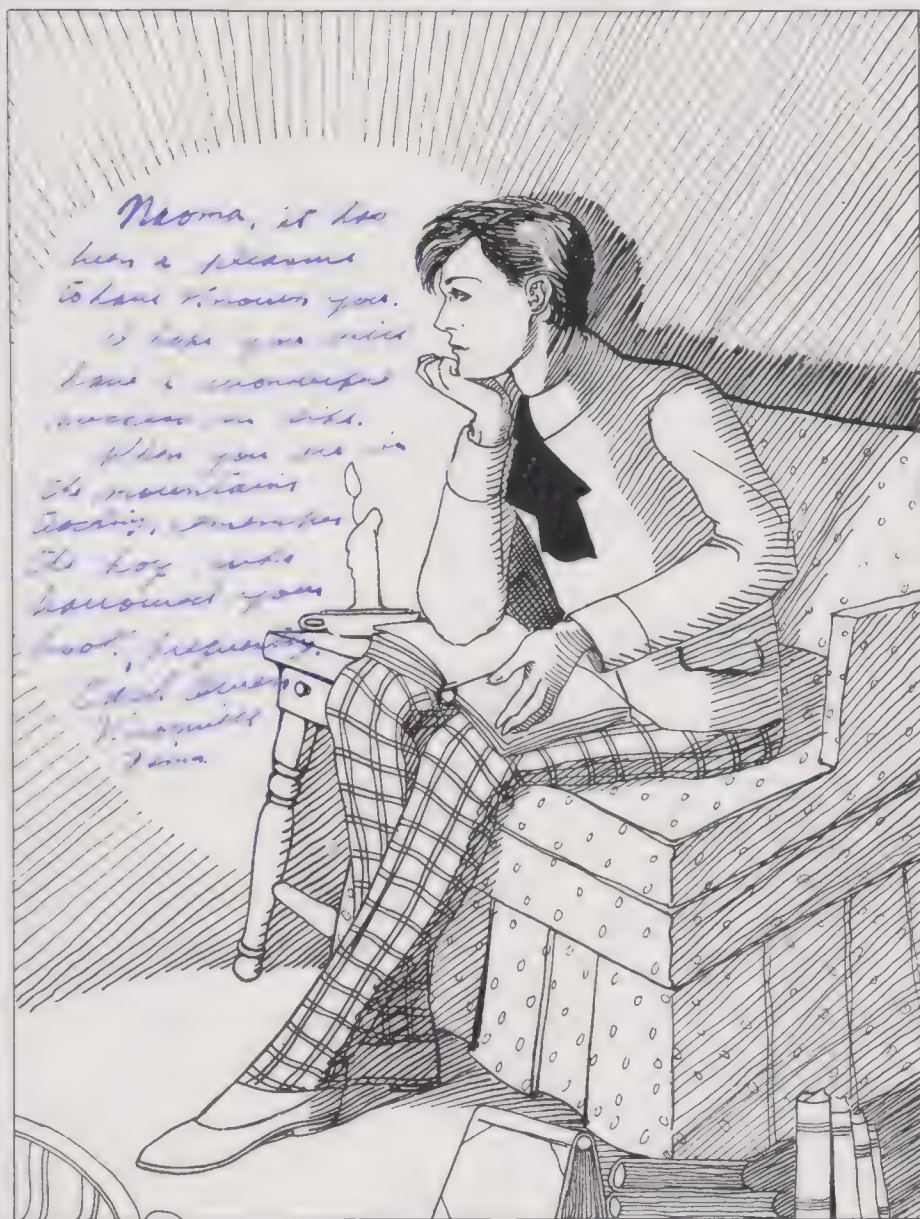 Naoma, it has
been a pleasure
to have known you.
I hope you will
have a wonderful
success in life.
When you are in
the mountains
teaching, remember
the boy who
borrowed your
book, frequently.